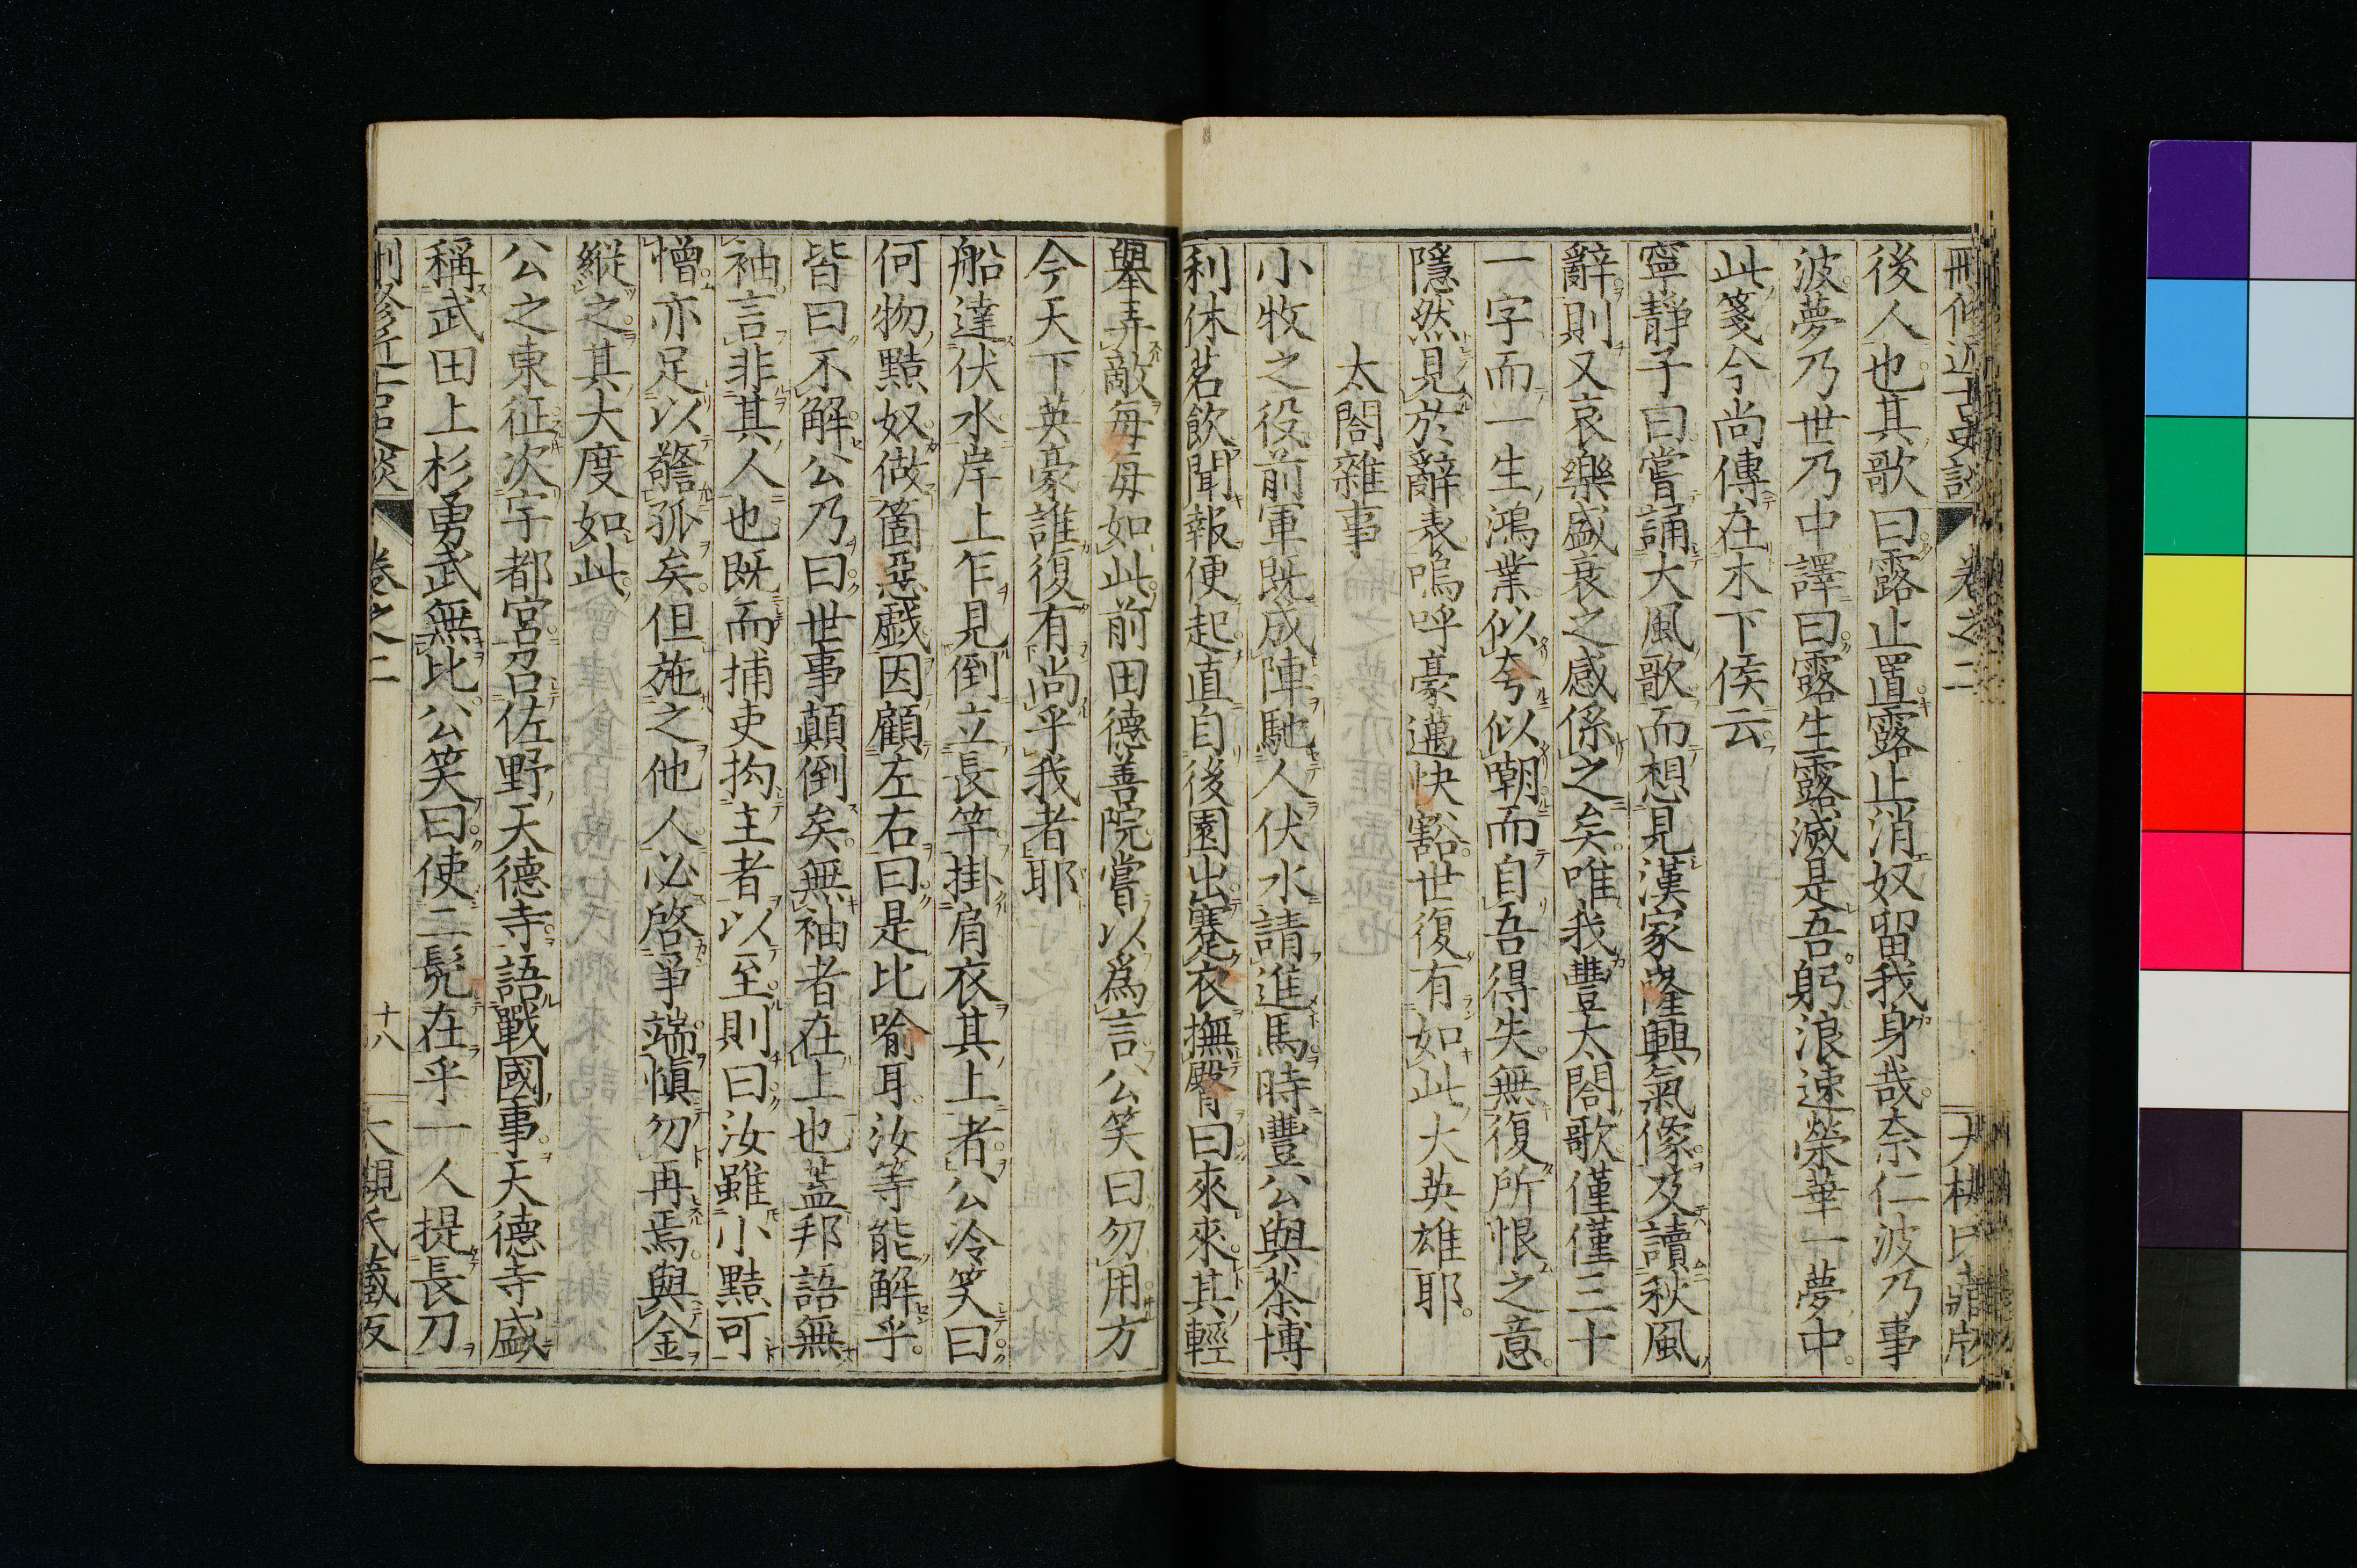 刪修近古史談 卷之二
後人也其歌曰露止置露止消奴留我身哉奈仁波乃事
波夢乃世乃中譯曰露生露滅是吾躬浪速榮華一夢中
此箋今尚傳在木下侯云
寧靜子曰嘗誦大風歌而想見漢家隆興氣像及讀秋風
辭則又哀樂盛衰之感係之矣唯我豐太閤歌僅僅三十
一字而一生鴻業似夸似嘲而自吾得失無復所恨之意
隱然見於辭表嗚呼豪邁快豁世復有如此大英雄耶
太閤雜事
小牧之役前軍既成陣馳人伏水請進馬時豐公與茶博
利休茗飲聞報便起直自後園出蹇衣撫臀曰來來其輕
擧弄敵每每如此前田德善院嘗以爲言公笑曰勿用方
今天下英豪誰復有尚乎我者耶
船達伏水岸上乍見倒立長竿掛肩衣其上者公冷笑曰
何物黠奴做箇惡戲因顧左右曰是比喻耳汝等能解乎
皆曰不解公乃曰世事顛倒矣無袖者在上也蓋邦語無
袖言非其人也既而捕吏拘主者以至則曰汝雖小黠可
憎亦足以警孤矣但施之他人必啓爭端愼勿再焉與金
縱之其大度如此
公之東征次宇都宮召佐野天德寺語戰國事天德寺盛
稱武田上杉勇武無比公笑曰使二髡在乎一人提長刀
刪修近古史談 卷之二 十八 大槻氏藏版